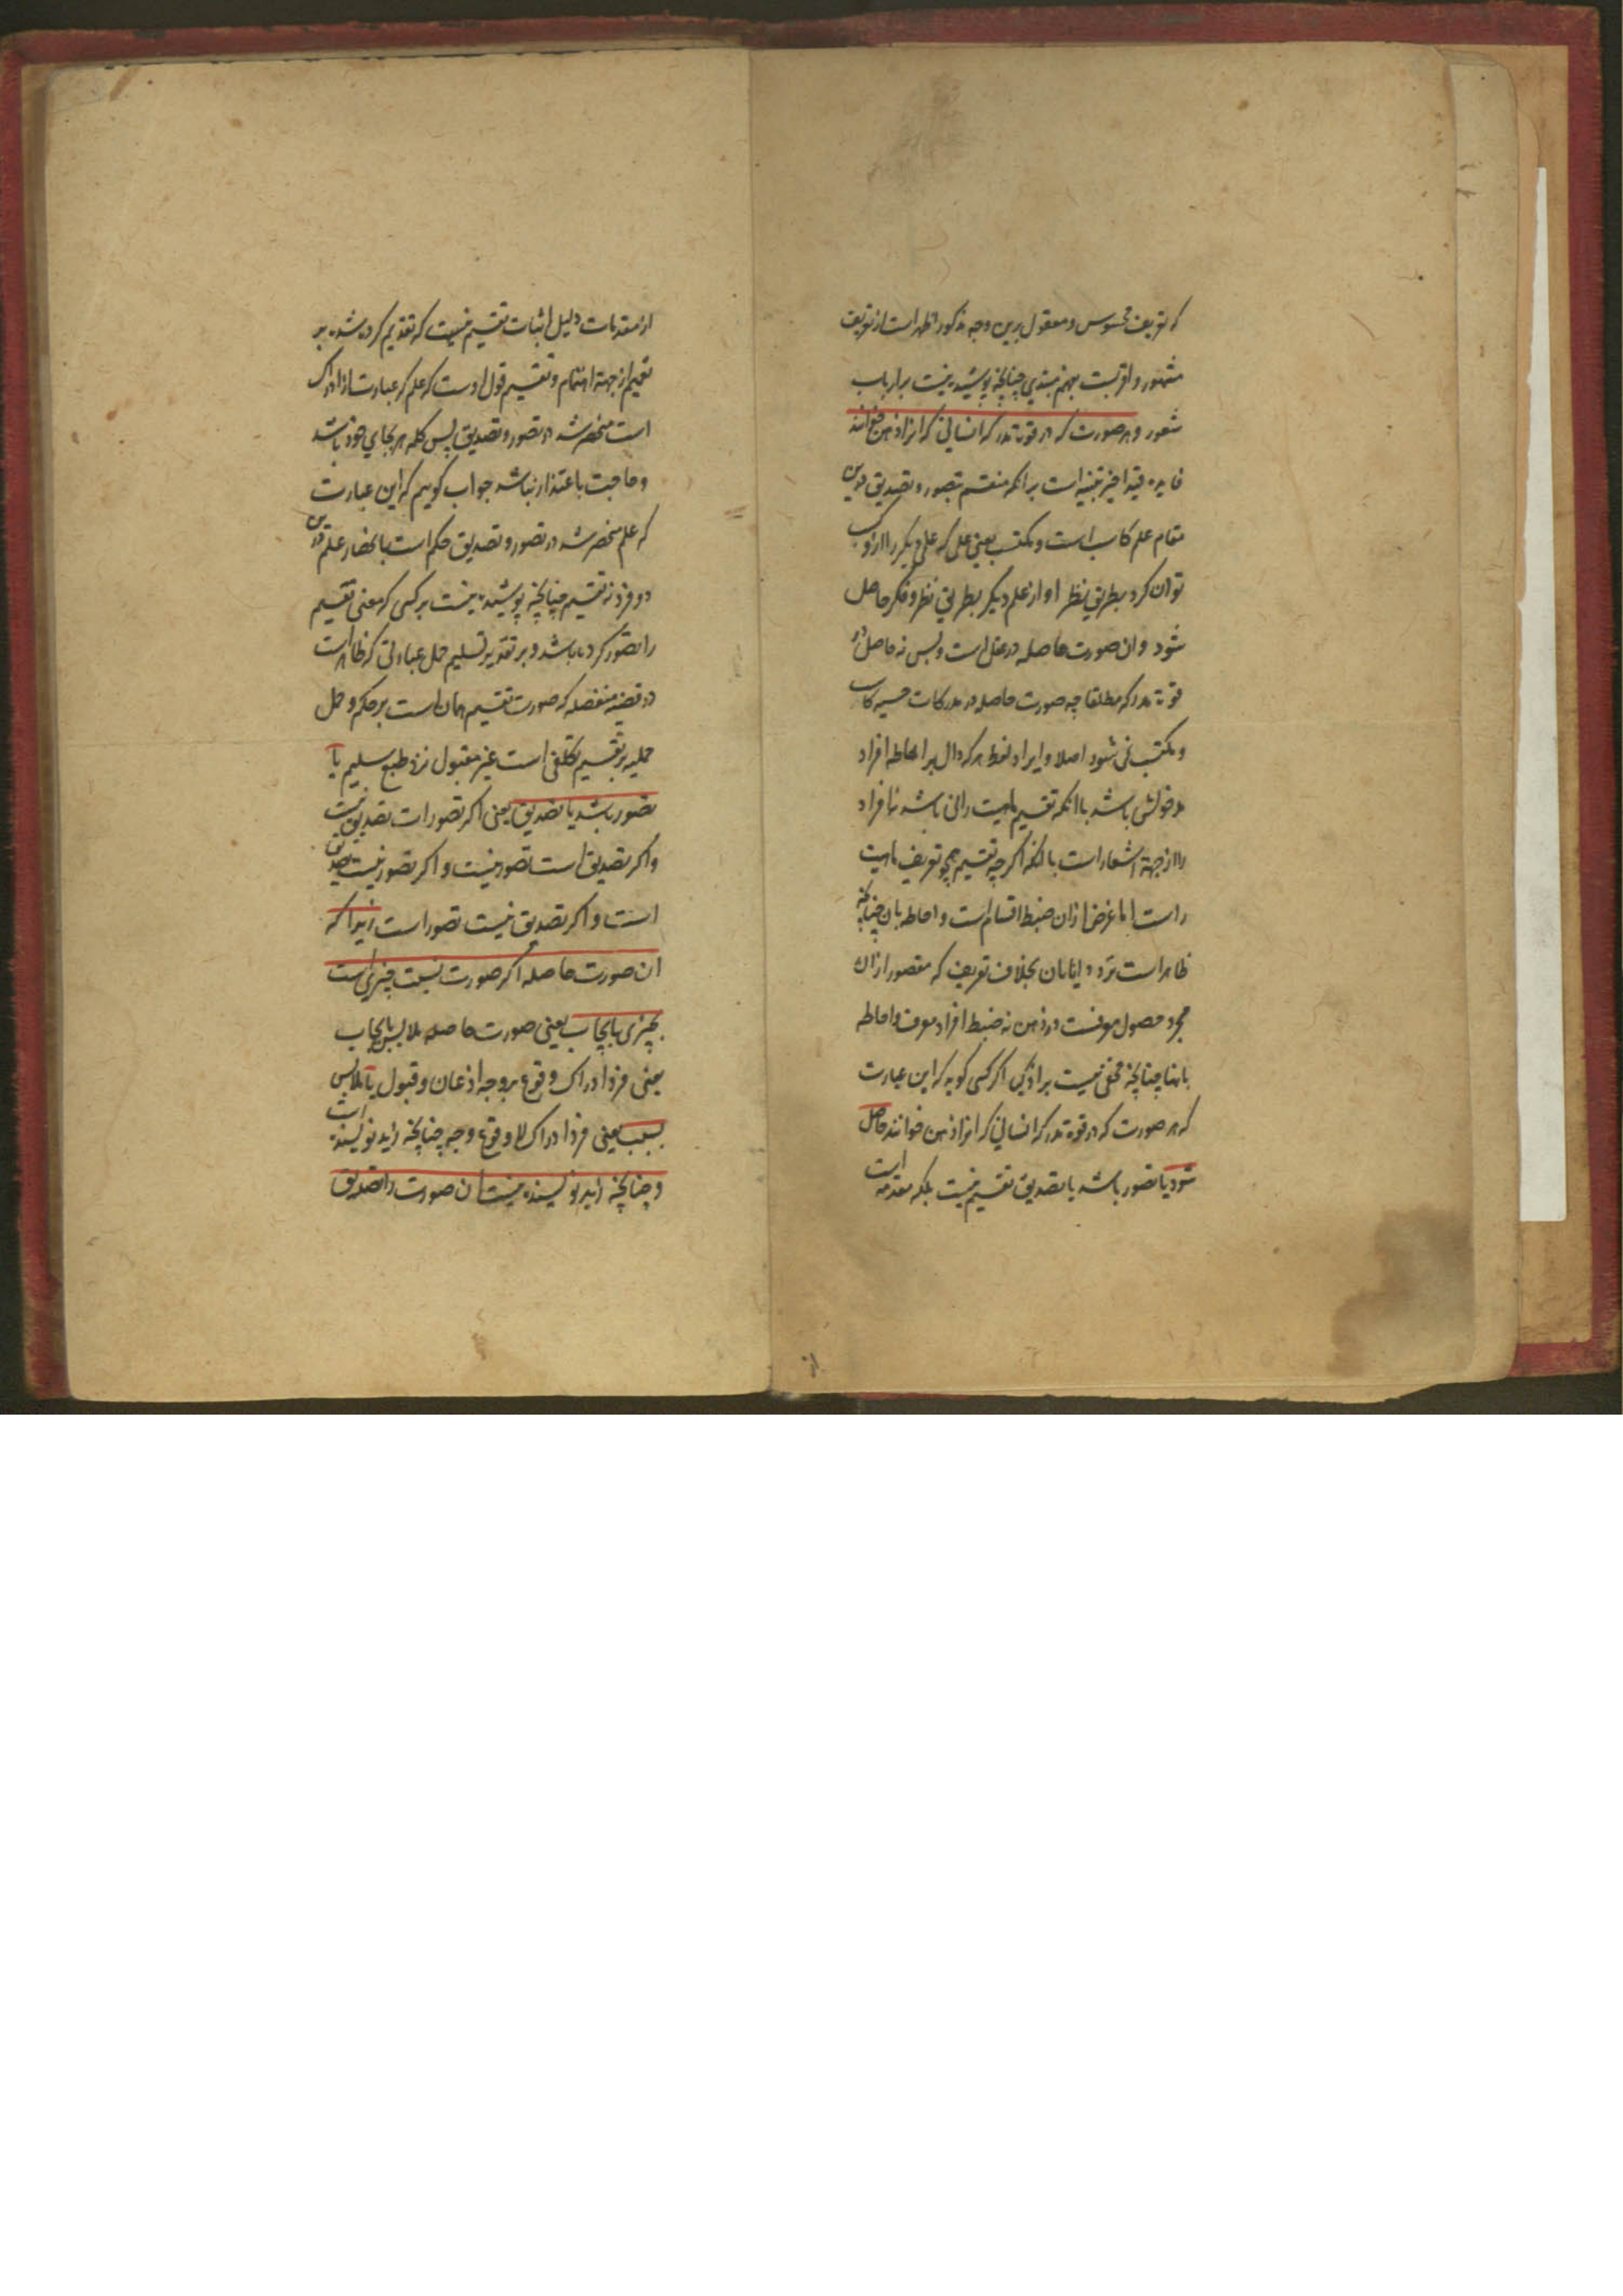 که تعریف محسوس و معقول برین وجه مذکور اظهر است از تعریف
مشهور و اقربست بهم مبتدی چنانچه پوشیده نیست بر ارباب
شعور و هر صورت که در قوة مدرکه انسانی که انرا ذهن خوانند
فایده قید اخیر تنبیه است بر انکه منقسم بتصور و تصدیق درین
مقام علم کاسب است و مکتسب یعنی علمی که علمی دیکر را ازو کسب
توان کرد بطریق نظر او از علم دیکر بطریق نظر و فکر حاصل
شود و ان صورت حاصله در عقل است و بس نه حاصل در
قوة مدرکه مطلقا چه صورت حاصله در مدرکات حسیه کاسب
و مکتسب نمی شود اصلا و ایراد لفظ هر که دال بر احاطه افراد
مدخولش باشد با انکه تقسیم ماهیت رامی باشد نه افراد
را از جهة اشعار است بانکه اکر چه تقسیم همچو تعریف ماهیت
راست اما غرض از ان ضبط اقسام است و احاطه بان چنانچه
ظاهر است بخلاف تعریف که مقصور از ان
مجرد حصول معرفست در ذهن نه ضبط افراد معرف و احاطه
بانها چنانچه مخفی نیست بر اذکیا اکر کسی کوید که این عبارت
که هر صورت که در قوة مدرکه انسانی که انرا ذهن خوانند حاصل
شود یا تصور باشد یا تصدیق تقسیم نیست بلکه مقدمه است
از
از مقدمات دلیل اثبات تقسیم نیست که تقدیم کرده شده بر
تقسیم از جهة اهتمام و تقسیم قول اوست که علم که عبارت از ادراک
است منحصر شد در تصور و تصدیق پس کلمه هر بجای خود باشد
و حاجت باعتذار نباشد جواب کوییم که این عبارت
که علم منحصر شد در تصور و تصدیق حکم است بانحصار علم درین
دو فرد نه تقسیم چنانچه پوشیده نیست بر کسی که معنی تقسیم
را تصور کرده باشد و بر تقدیر تسلیم حمل عبارتی که ظاهر است
در قضیه منفصله که صورت تقسیم همان است بر حکم و حمل
حملیه بر تقسیم تکلفی است غیر مقبول نزد طبع سلیم یا
تصور باشد یا تصدیق یعنی اکر تصور است تصدیق نیست
و اکر تصدیق است تصور نیست و اکر تصور نیست تصدیق
است و اکر تصدیق نیست تصور است زیرا که
ان صورت حاصله اکر صورت نسبت چیزی است
بچیزی بایجاب یعنی صورت حاصله ملابس بایجاب
یعنی فرد ادراک وقوع بر وجه اذعان و قبول یا ملابس
بسلب یعنی فرد ادراک لا وقوع وجه چنانچه زید نویسنده است
و چنانچه زید نویسنده نیست ان صورت را تصدیق